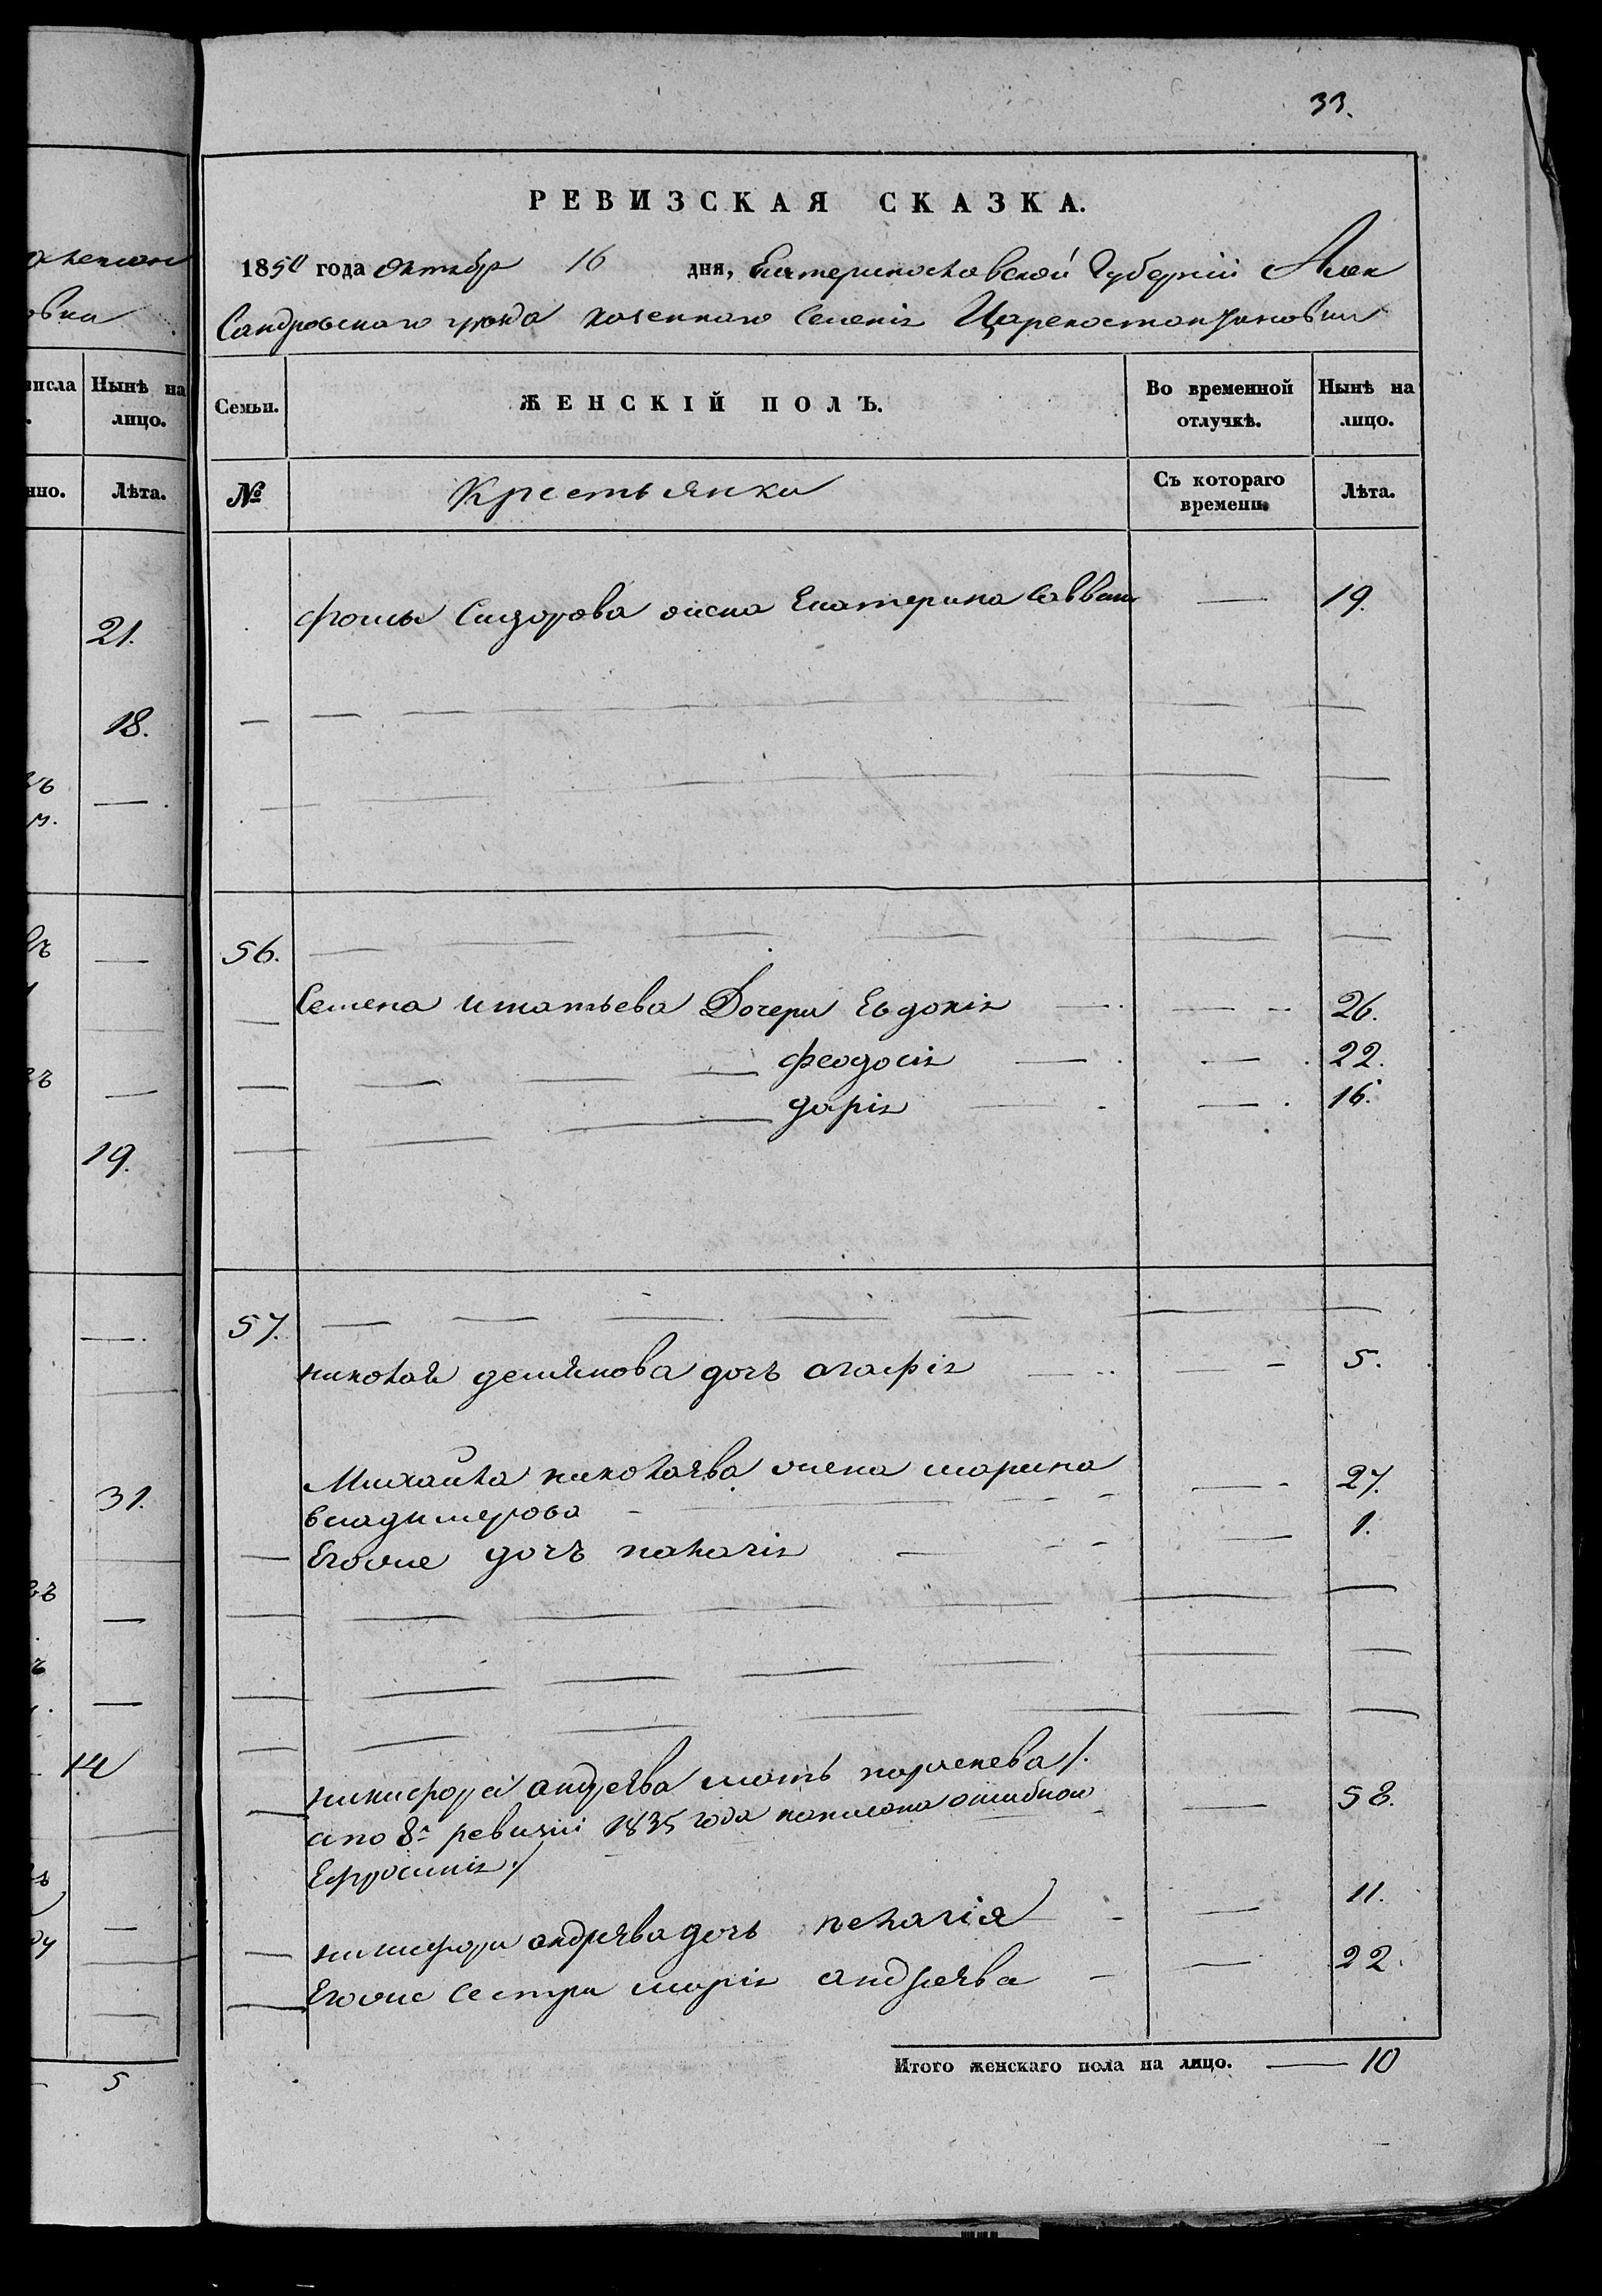 33.
РЕВИЗСКАЯ СКАЗКА.
1850 года Октябр 16 дня, Екатеринославской Губернiи Алек
Сандровского уезда казенного Селенiя Цареконстантиновки
овка
числа
Нынѣ на лицо.
Семьи.
ЖЕНСКIЙ ПОЛЪ.
Во временной отлучкѣ.
Нынѣ на лицо.
нно.
Лѣта.
№
Крестьянки
Съ котораго времени.
Лѣта.
21.
18.
19.
31.
14
5
фомы Сидорова жена Екатерина Саввина — 19.
56.
Семена игнатьева Дочери Евдокiя — 26.
феодосiя — 22.
дарiя — 16.
57.
николая демьянова дочь агафiя — 5.
Михайла николаева жена марина — 27.
владимерова
Егоже дочь пелагiя — 1.
никифора андреева мать парасева /.
а по 8й ревизiи 1835 года написана ошибкою — 58.
Ефросинiя ./
никифора андреева дочь пелагiя — 11.
Егоже Сестра марiя андреева — 22.
Итого женскаго пола на лицо. — 10